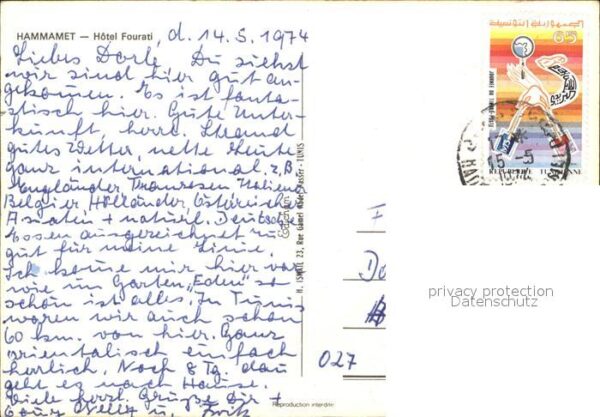 HAMMAMET — Hôtel Fourati, d. 14.5.1974
Liebes Dorle Du siehst
wir sind hier gut an-
gekommen. Es ist fanta-
stisch hier. Gute Unter-
kunft, herrl. Strand
gutes Wetter, nette Leute
ganz international. z.B.
Engländer Franzosen Italiener
Belgier Holländer Österreicher
Asiaten + natürl. Deutsche
Essen ausgezeichnet u.
gut für meine Linie.
Ich komme mir hier vor
wie im Garten "Eden" so
schön ist alles. In Tunis
waren wir auch schon
60 km. von hier. Ganz
orientalisch einfach
herrlich. Noch 8 Tg. dau
geht es nach Hause.
Viele herzl. Grüße Dir +
Nelly u. Fritz
H. ISMAÏL 23, Rue Gamel Abdel Nasser - TUNIS
Reproduction interdite
027
65
REPUBLIQUE TUNISIENNE
الجمهورية التونسية
privacy protection
Datenschutz